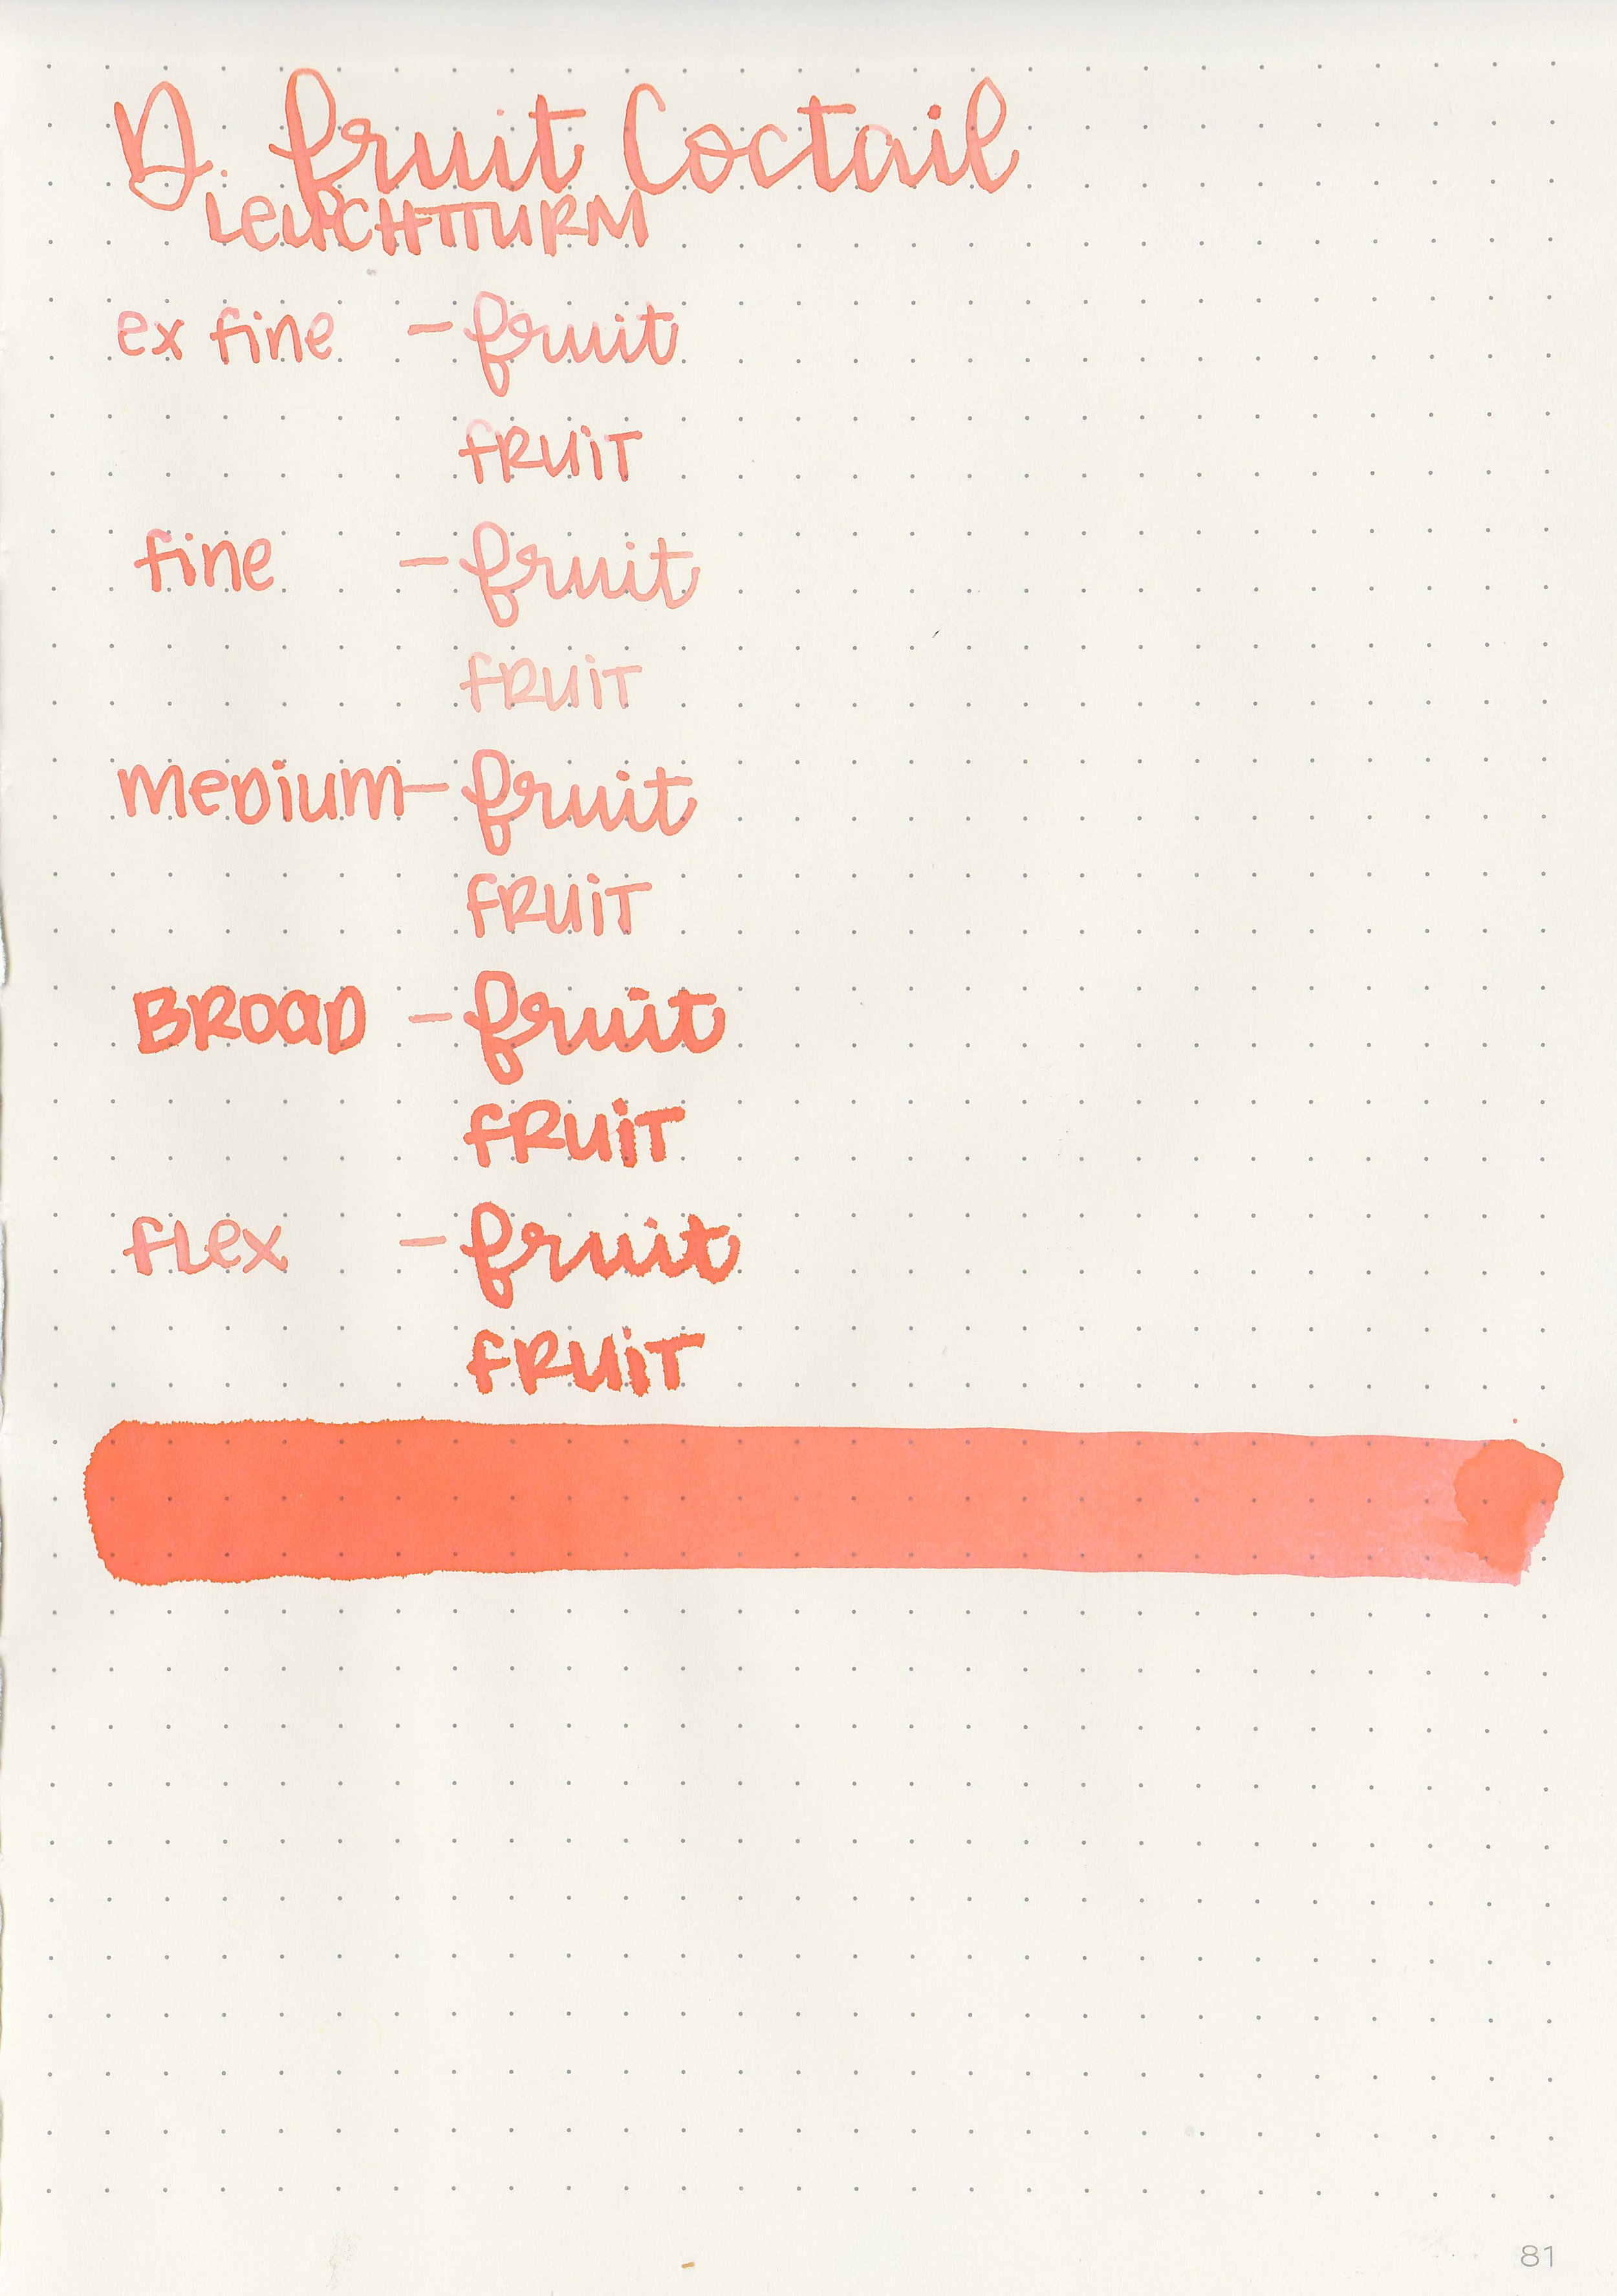 D. fruit Coctail
LEUCHTTURM
ex fine - fruit
FRUIT
fine - fruit
FRUIT
MEDIUM - fruit
FRUIT
BROAD - fruit
FRUIT
flex - fruit
FRUIT
81